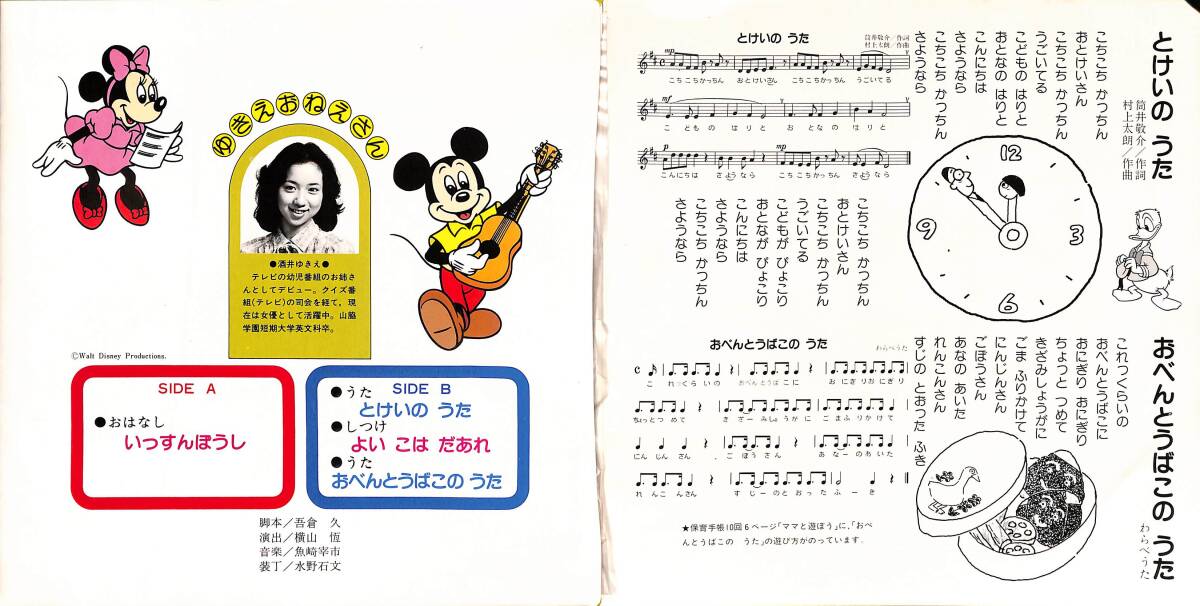 ゆきえおねえさん
●酒井ゆきえ●
テレビの幼児番組のお姉さ
んとしてデビュー。クイズ番
組(テレビ)の司会を経て，現
在は女優として活躍中。山脇
学園短期大学英文科卒。
©Walt Disney Productions.
SIDE A
●おはなし
いっすんぼうし
SIDE B
●うた
とけいの うた
●しつけ
よい こは だあれ
●うた
おべんとうばこの うた
脚本／吾倉 久
演出／横山 恆
音楽／魚崎宰市
装丁／水野石文
とけいの うた
筒井敬介／作詞
村上太朗／作曲
mp
こち こちかっちん おとけいさん こちこちかっちん うごいてる
mf
こ ども の はり と お とな の はり と
p
mp
p
こんにちは さようなら こちこちかっちん さようなら
とけいの うた
筒井敬介／作詞
村上太朗／作曲
こちこち かっちん
おとけいさん
こちこち かっちん
うごいてる
こどもの はりと
おとなの はりと
こんにちは
さようなら
こちこち かっちん
さようなら
こちこち かっちん
おとけいさん
こちこち かっちん
うごいてる
こどもが ぴょこり
おとなが ぴょこり
こんにちは
さようなら
こちこち かっちん
さようなら
12
3
6
9
おべんとうばこの うた
わらべうた
こ れっくらいの おべんとうばこに お にぎりおにぎり
ちょっとつめて きざーみしょうがに ごまふりかけて
にんじんさん ごぼうさん あなーのあいた
れんこんさん すじーのとおったふーき
おべんとうばこの うた
わらべうた
これっくらいの
おべんとうばこに
おにぎり おにぎり
ちょっと つめて
きざみしょうがに
ごま ふりかけて
にんじんさん
ごぼうさん
あなの あいた
れんこんさん
すじの とおった ふき
★保育手帳10回6ページ「ママと遊ぼう」に，「おべ
んとうばこの うた」の遊び方がのっています.